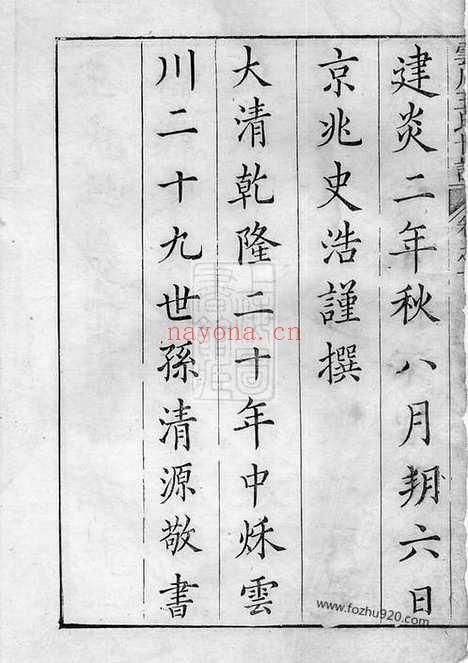 建炎二年秋八月朔六日
京兆史浩謹撰
大清乾隆二十年中秌雲
川二十九世孫清源敬書
nayona.cn
www.fozhu920.com